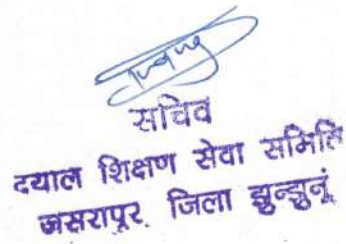 सचिव
दयाल शिक्षण सेवा समिति
जसरापुर जिला झुन्झुनूं